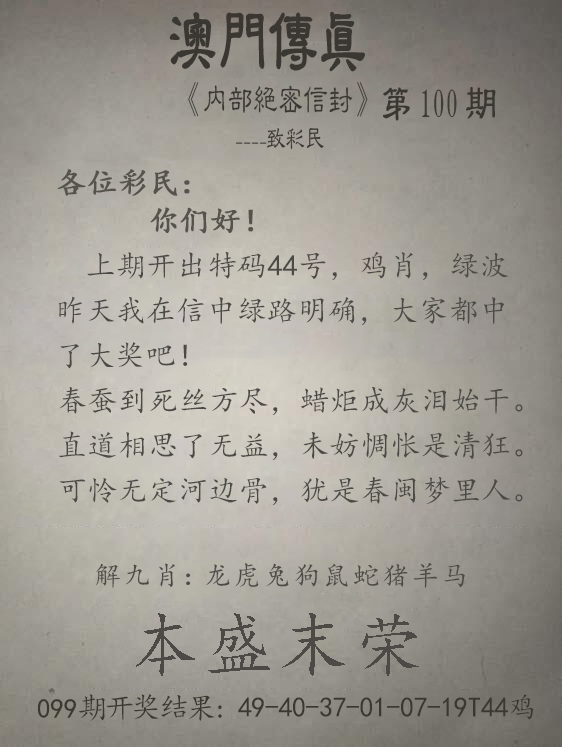 澳門傳眞
《内部絕密信封》第100期
----致彩民
各位彩民：
你们好！
上期开出特码44号，鸡肖，绿波
昨天我在信中绿路明确，大家都中
了大奖吧！
春蚕到死丝方尽，蜡炬成灰泪始干。
直道相思了无益，未妨惆怅是清狂。
可怜无定河边骨，犹是春闺梦里人。
解九肖：龙虎兔狗鼠蛇猪羊马
本盛末荣
099期开奖结果：49-40-37-01-07-19T44鸡